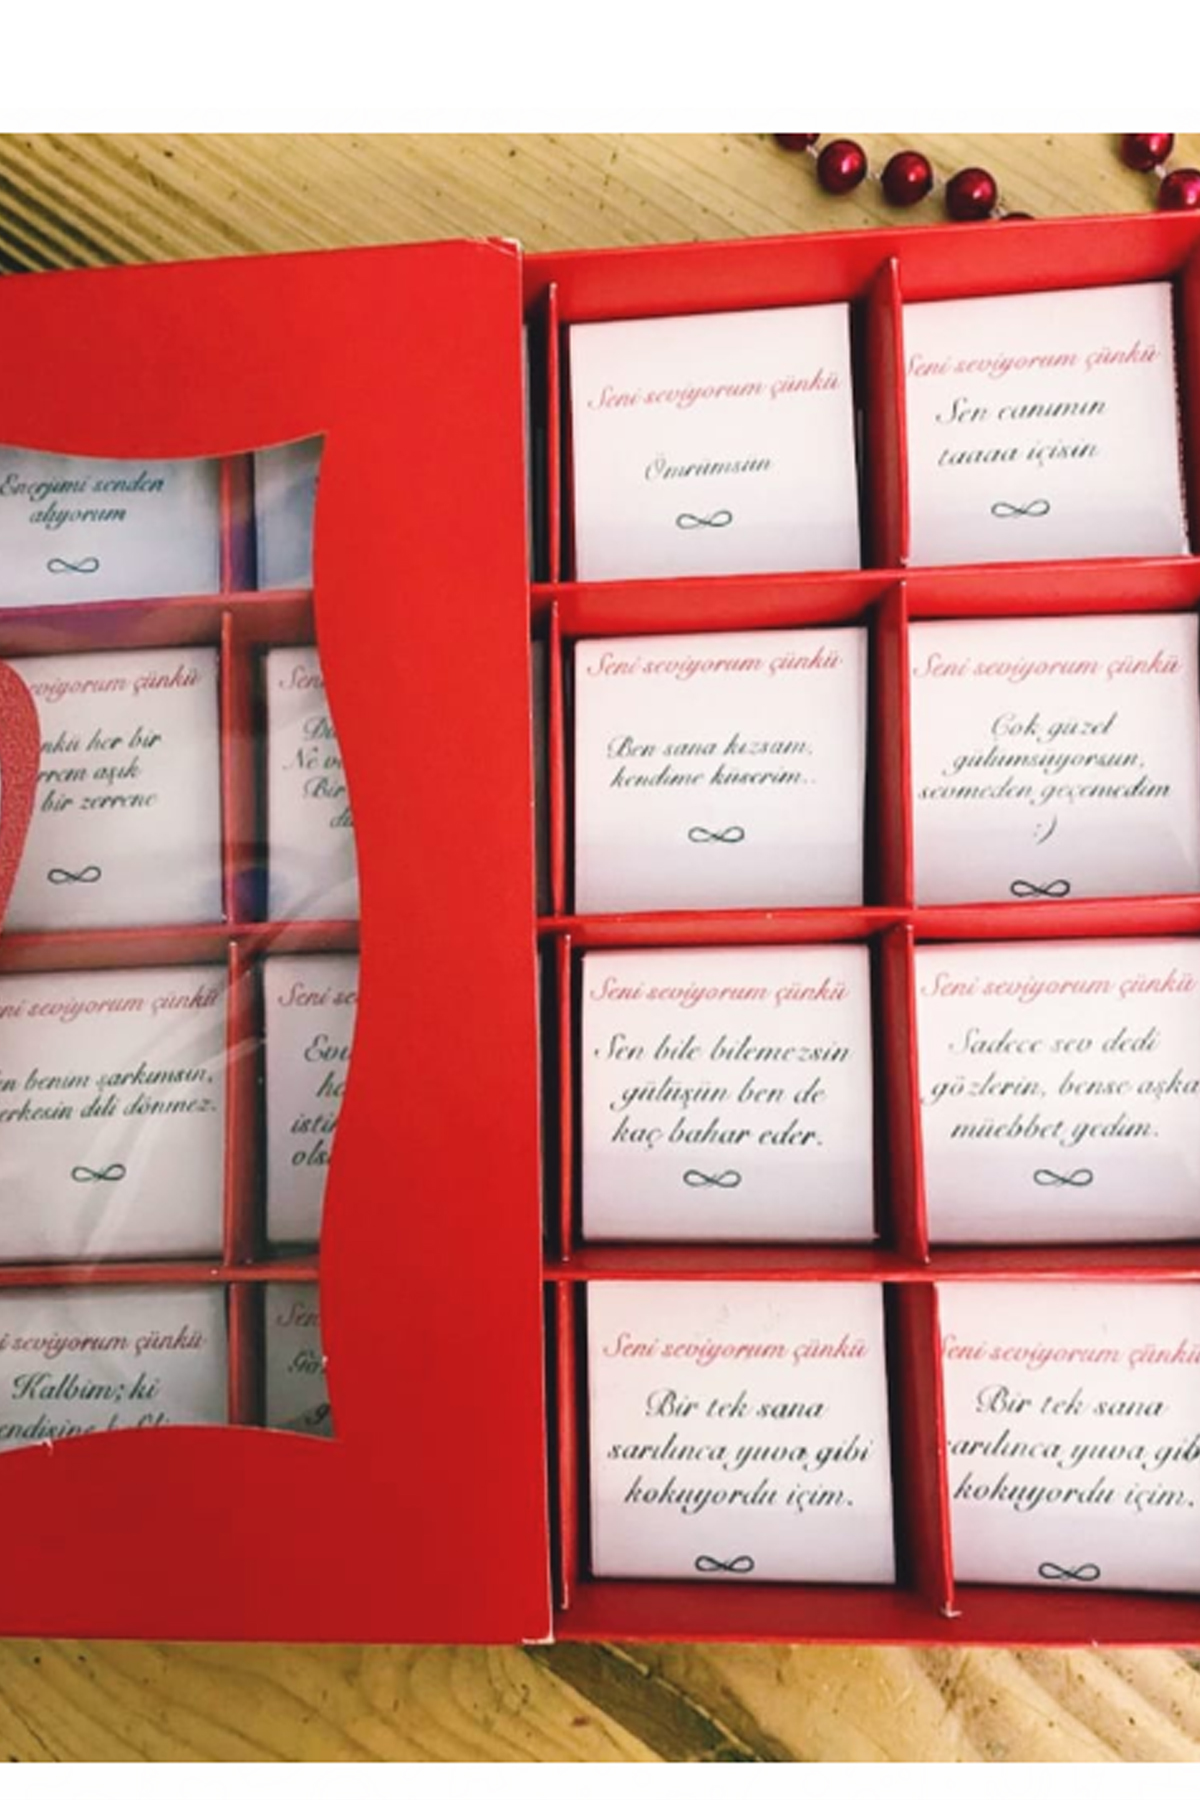 Enerjimi senden
alıyorum
seviyorum çünkü
her bir
aşık
bir zerrene
Seni
Bir
seviyorum çünkü
benim şarkımsın,
dili dönmez.
Seni
seviyorum çünkü
Kalbim; ki
Seni seviyorum çünkü
Ömrümsün
Seni seviyorum çünkü
Sen canımın
taaaa içisin
Seni seviyorum çünkü
Ben sana kızsam,
kendime küserim..
Seni seviyorum çünkü
Çok güzel
gülümsüyorsun,
sevmeden geçemedim
:)
Seni seviyorum çünkü
Sen bile bilemezsin
gülüşün ben de
kaç bahar eder.
Seni seviyorum çünkü
Sadece sev dedi
gözlerin, bense aşka
müebbet yedim.
Seni seviyorum çünkü
Bir tek sana
sarılınca yuva gibi
kokuyordu içim.
Seni seviyorum çünkü
Bir tek sana
sarılınca yuva gibi
kokuyordu içim.